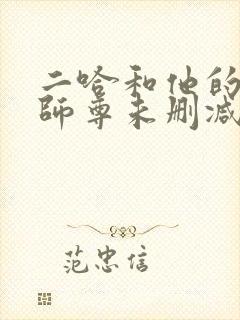 二哈和他的
师尊未删减
范忠信